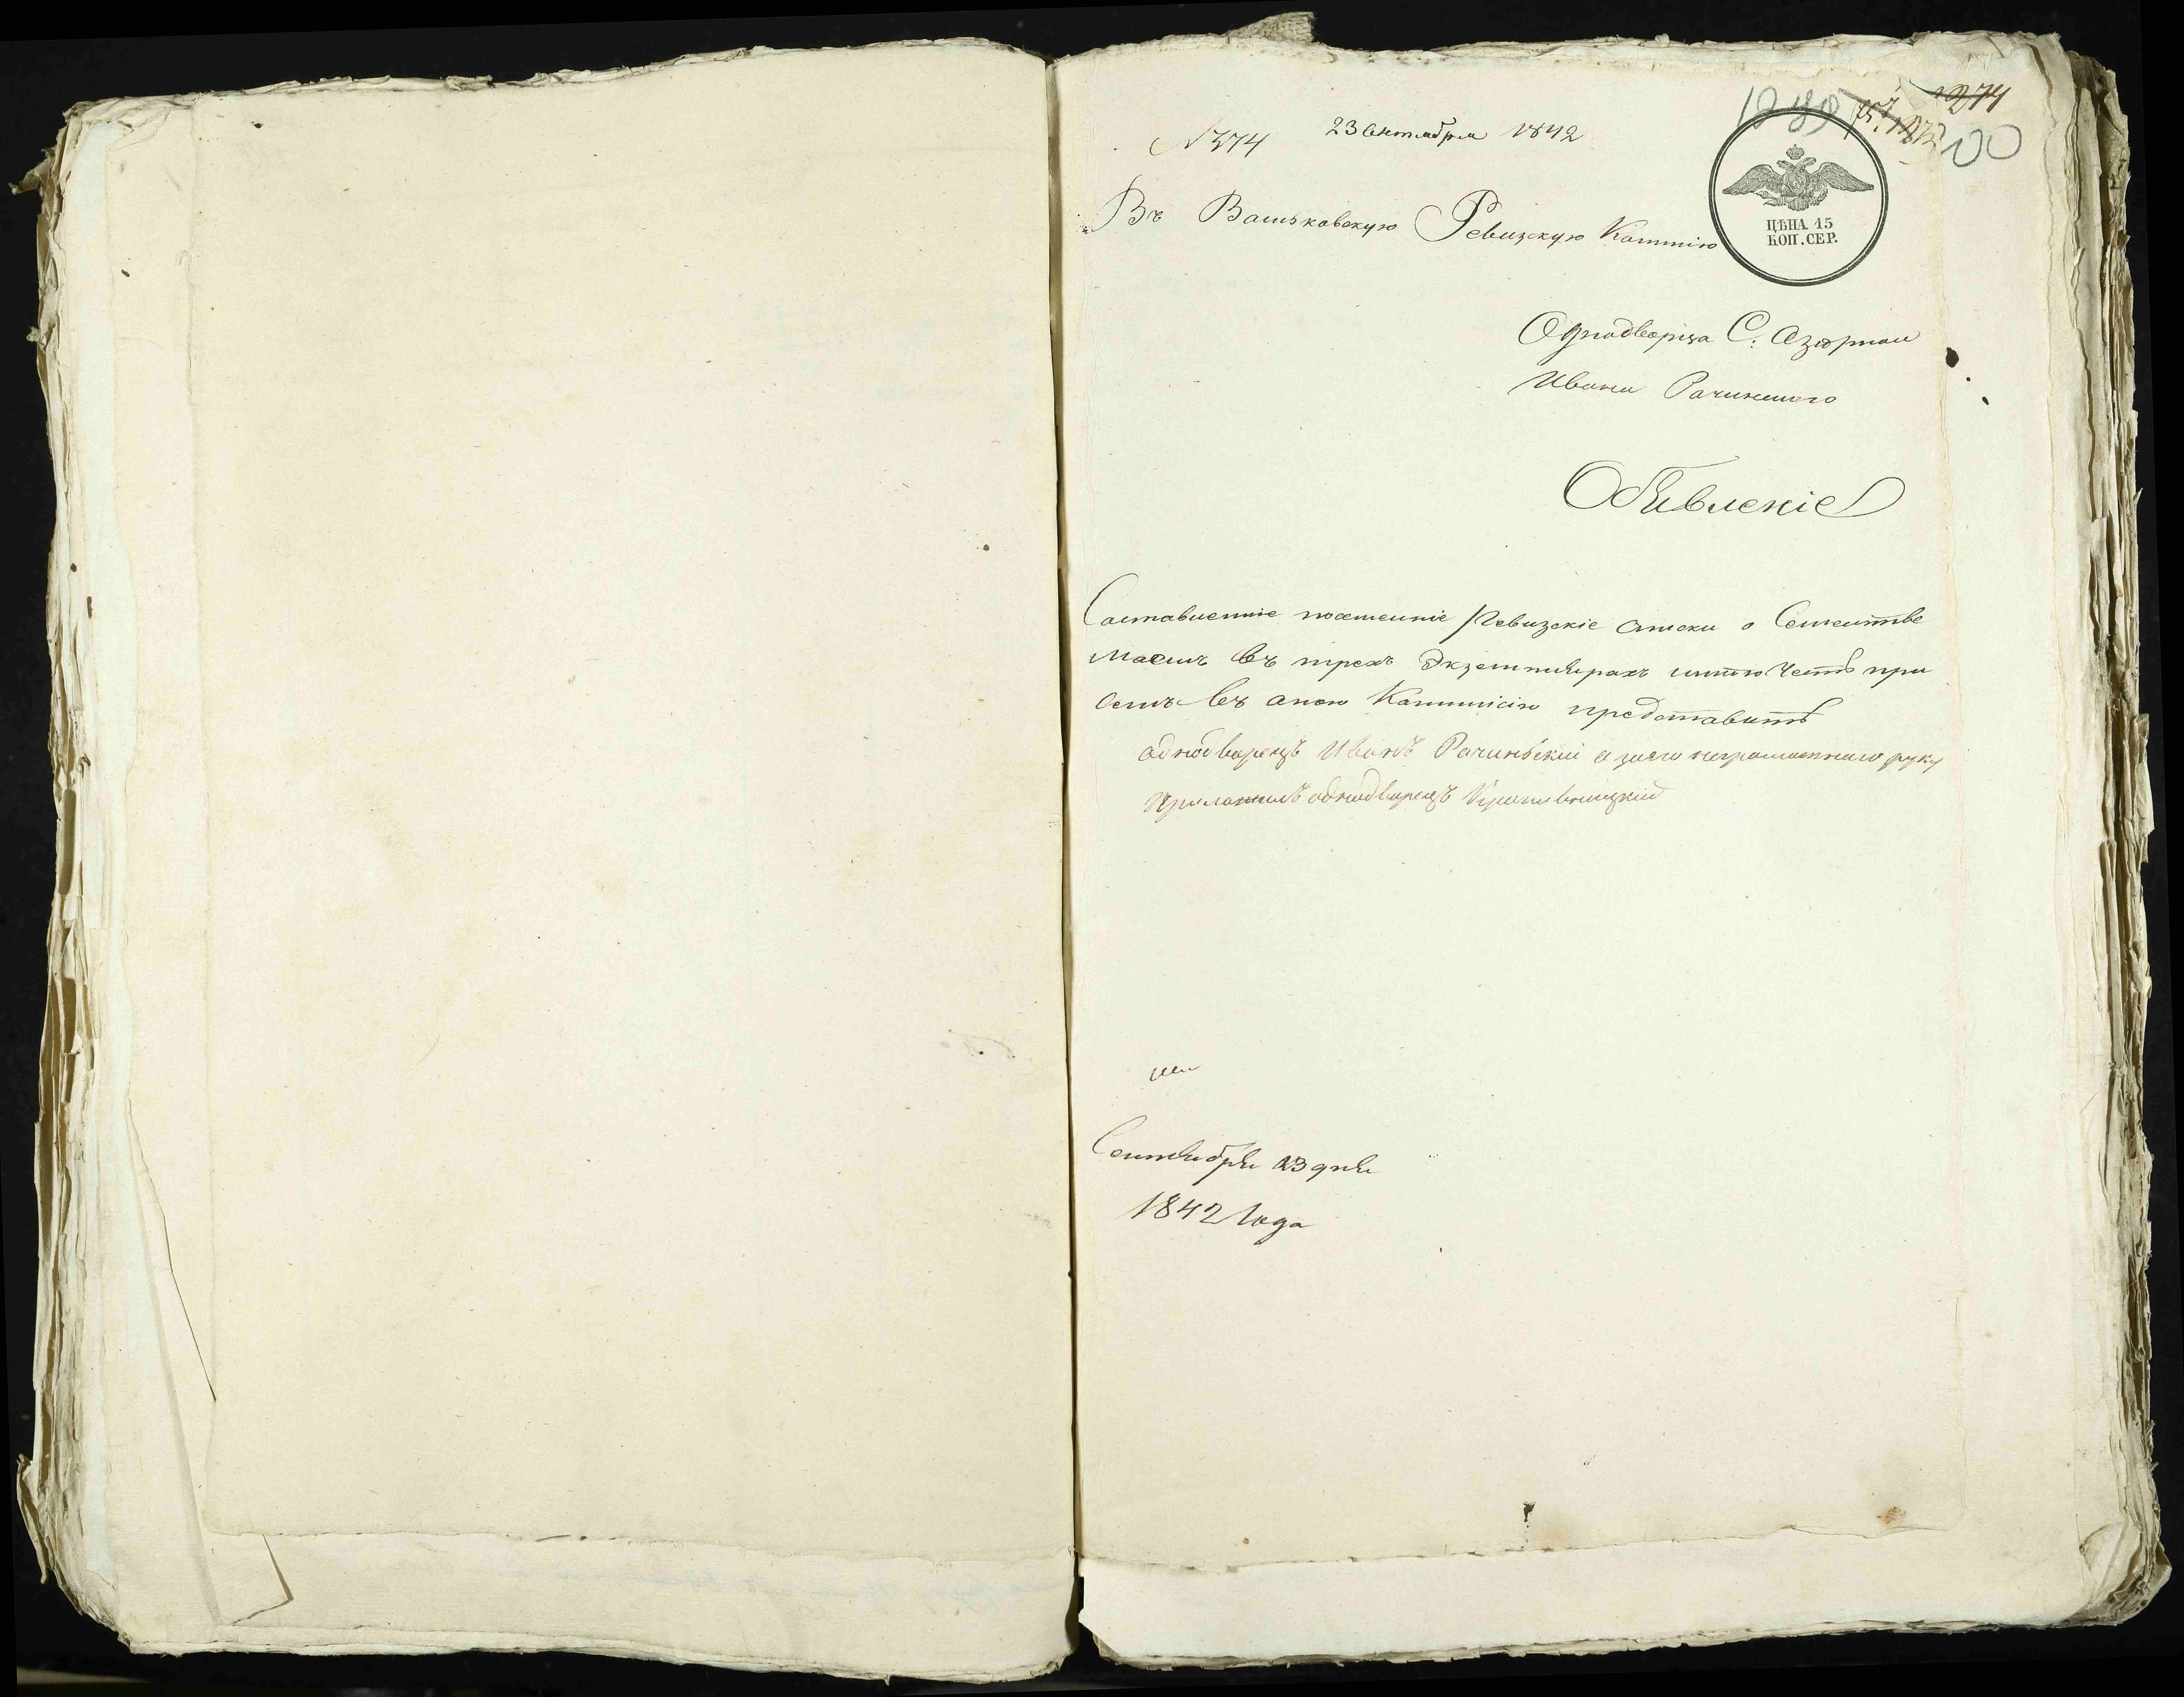 1274
100
N 374 23 Сентября 1842
ЦѢНА 15
КОП. СЕР.
Въ Васьковскую Ревизскую Комитію
Однодворца С. Озюрной
Ивана Рачинского
Объявленіе
Составленніе посеменніе Ревизскіе списки о Семействе
Маемъ въ трехъ Экземпляряхъ имѣю Честь при
семъ въ аною Каммисію представить
аднодварецъ Иванъ Рачиньский а заяго неграматнаго руку
приложилъ аднодварецъ
Сентября 23 дня
1842 Года